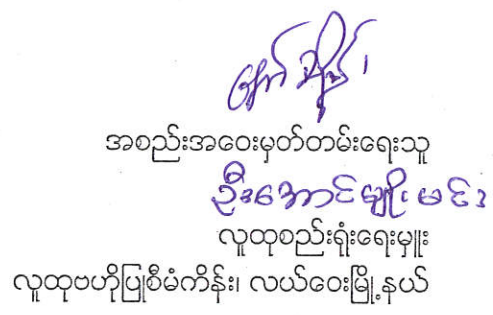 အစည်းအဝေးမှတ်တမ်းရေးသူ
ဦးအောင်မျိုးမင်း
လူထုစည်းရုံးရေးမှူး
လူထုဗဟိုပြုစီမံကိန်း၊ လယ်ဝေးမြို့နယ်